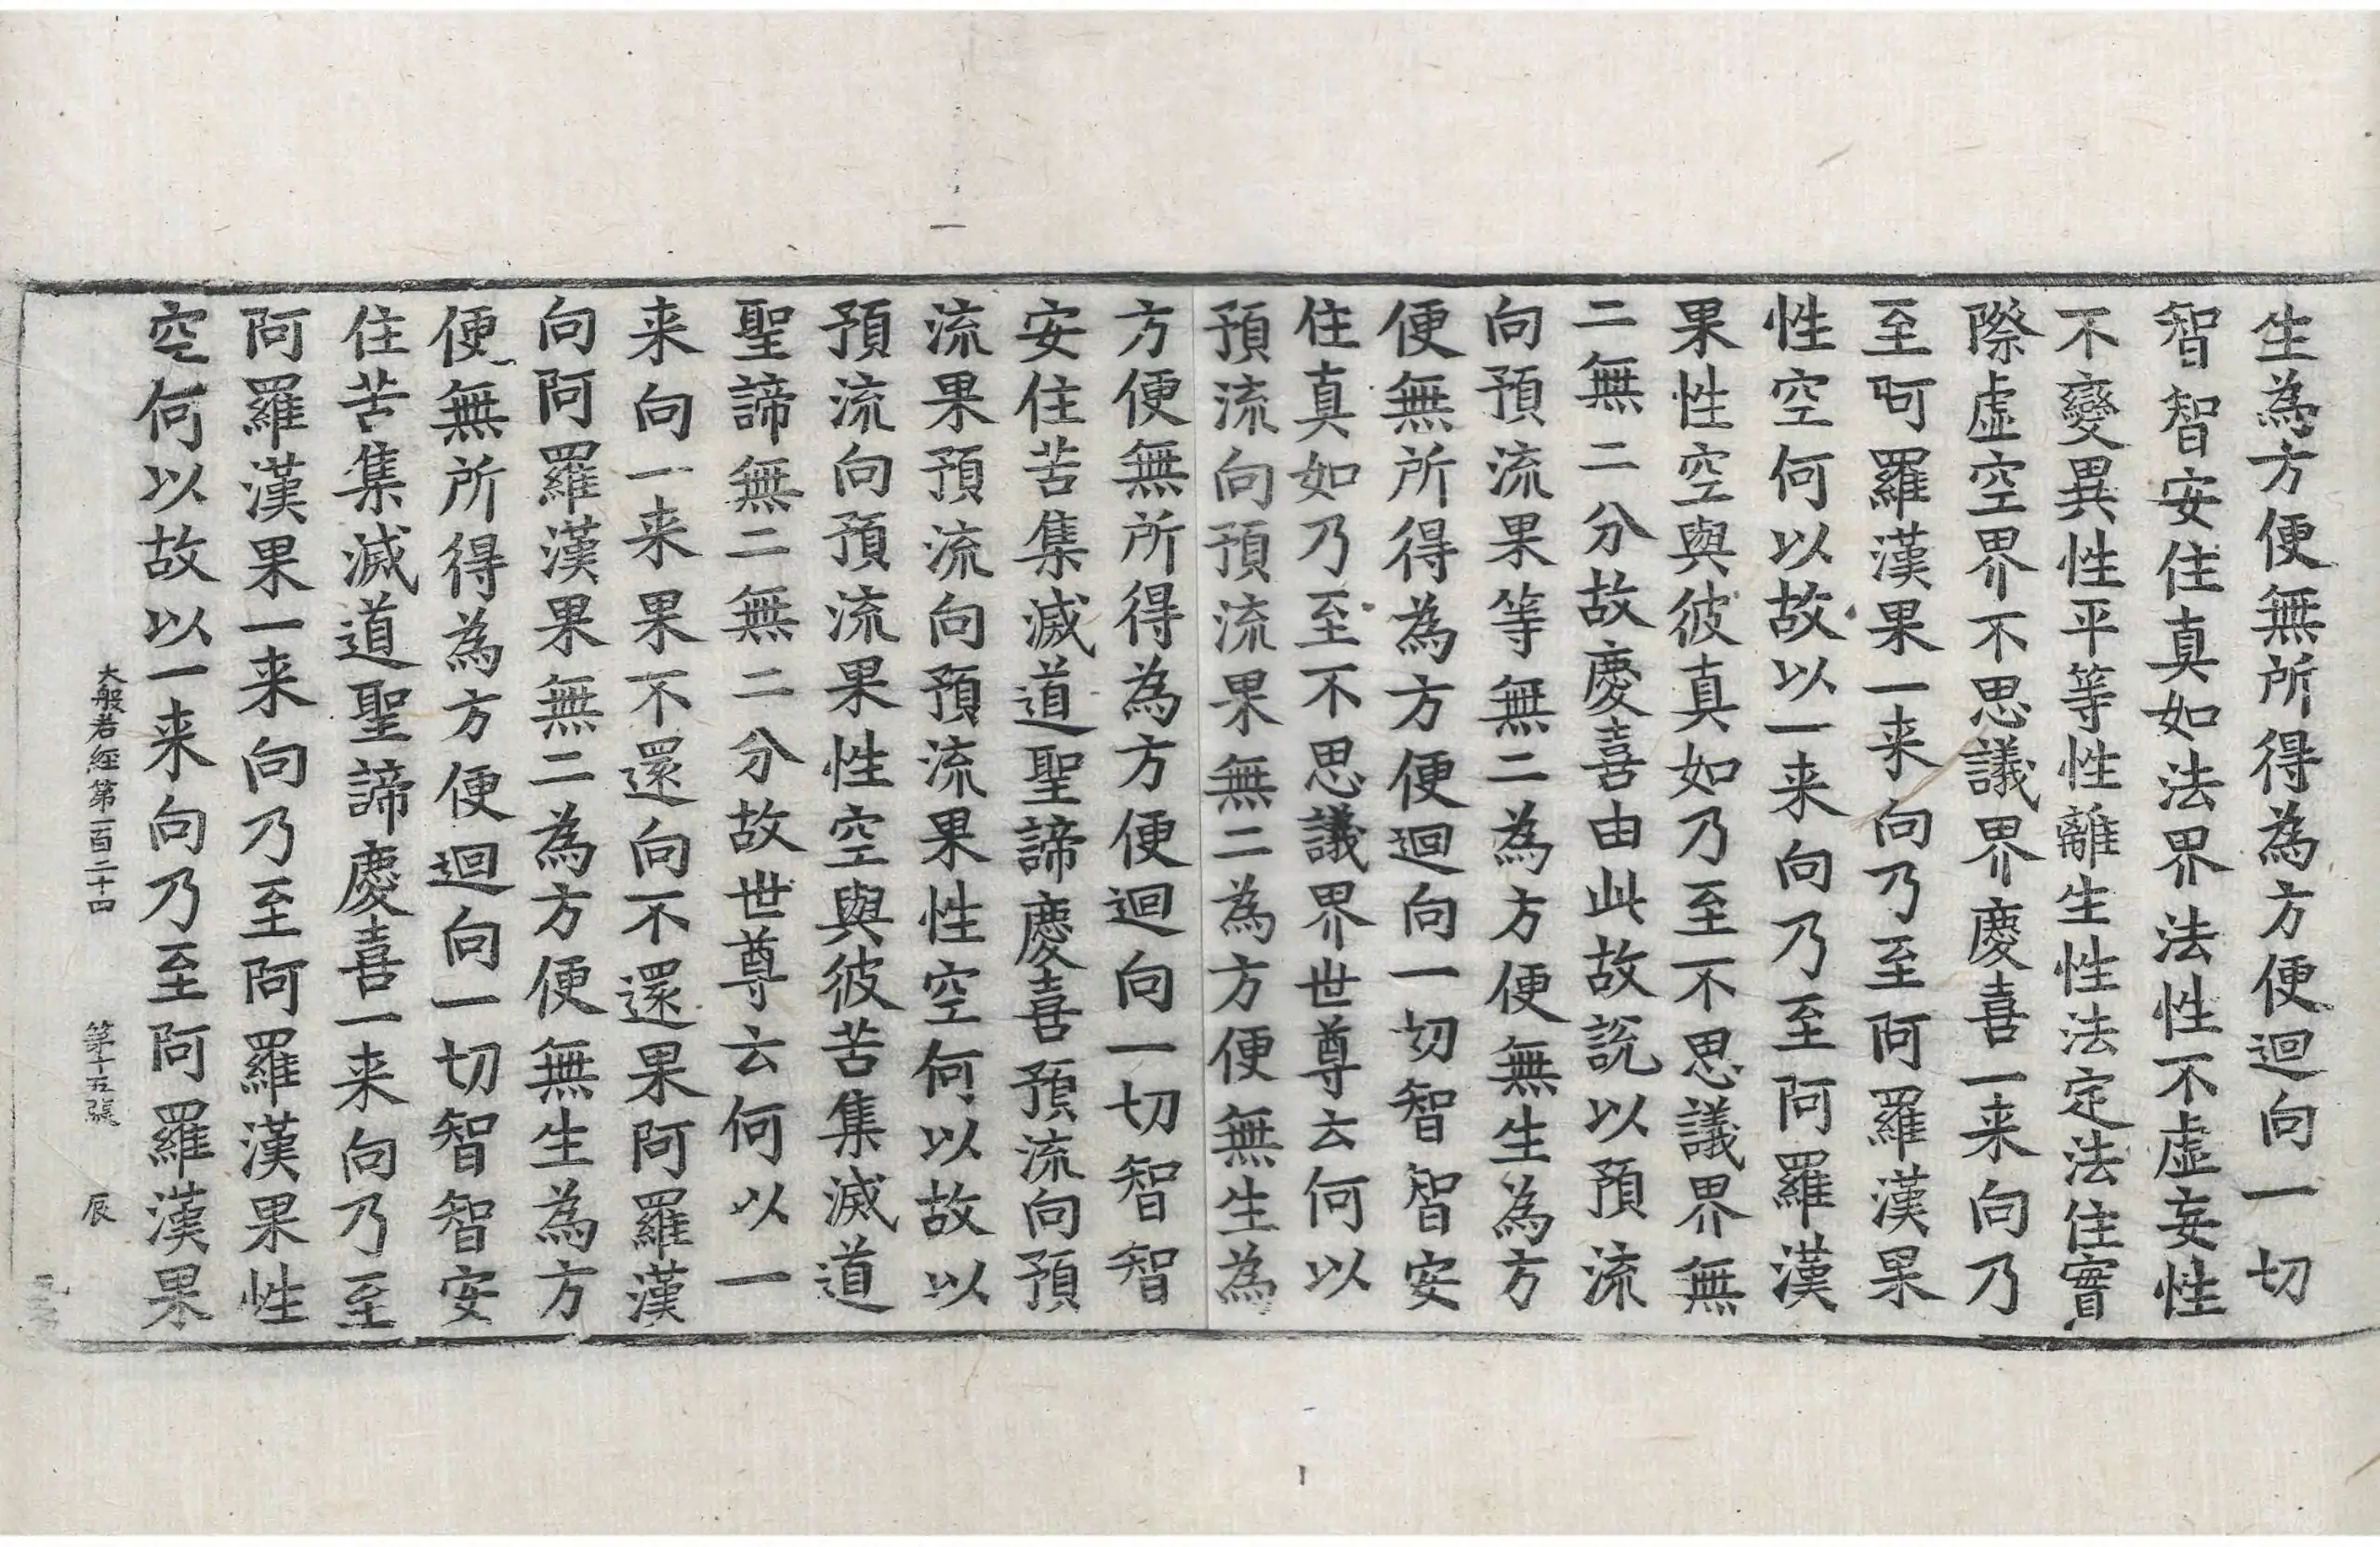 生為方便無所得為方便迴向一切
智智安住真如法界法性不虛妄性
不變異性平等性離生性法定法住實
際虛空界不思議界慶喜一来向乃
至阿羅漢果一来向乃至阿羅漢果
性空何以故以一来向乃至阿羅漢
果性空與彼真如乃至不思議界無
二無二分故慶喜由此故說以預流
向預流果等無二為方便無生為方
便無所得為方便迴向一切智智安
住真如乃至不思議界世尊云何以
預流向預流果無二為方便無生為
方便無所得為方便迴向一切智智
安住苦集滅道聖諦慶喜預流向預
流果預流向預流果性空何以故以
預流向預流果性空與彼苦集滅道
聖諦無二無二分故世尊云何以一
来向一来果不還向不還果阿羅漢
向阿羅漢果無二為方便無生為方
便無所得為方便迴向一切智智安
住苦集滅道聖諦慶喜一来向乃至
阿羅漢果一来向乃至阿羅漢果性
空何以故以一来向乃至阿羅漢果
大般若經第一百二十四 第十五張 辰